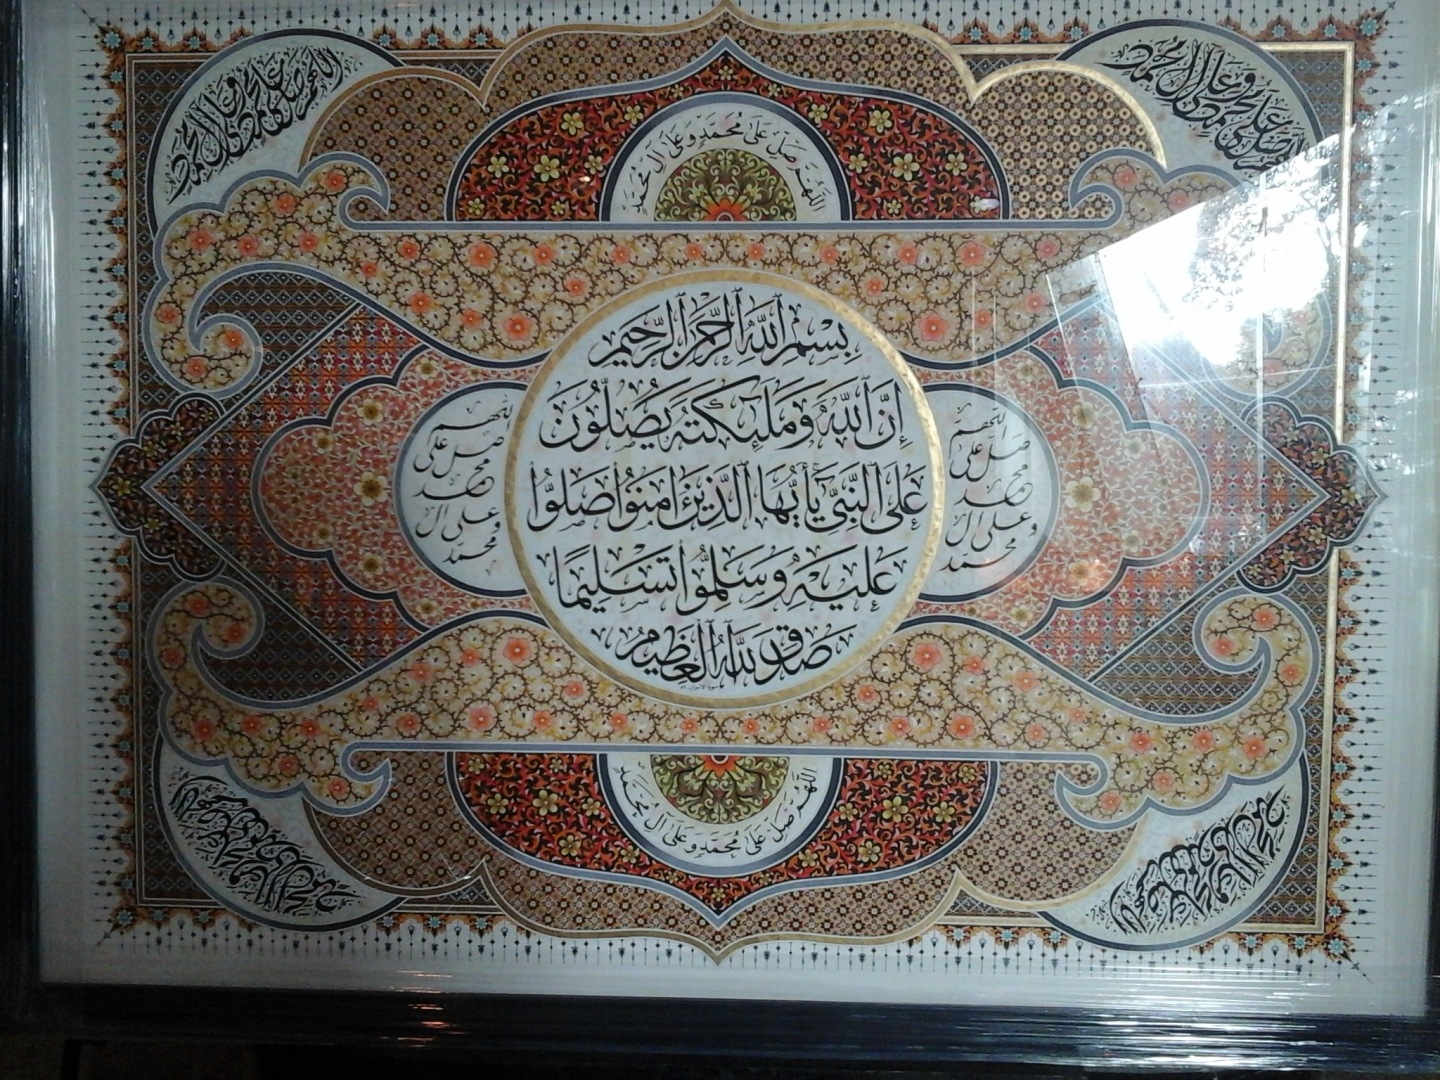 اللهم صل على محمد وعلى آل محمد
اللهم صل على محمد وعلى آل محمد
اللهم صل على محمد وعلى ال محمد
بِسْمِ ٱللَّهِ ٱلرَّحْمَٰنِ ٱلرَّحِيمِ
إِنَّ ٱللَّهَ وَمَلَٰٓئِكَتَهُۥ يُصَلُّونَ
عَلَى ٱلنَّبِيِّ يَٰٓأَيُّهَا ٱلَّذِينَ ءَامَنُوا۟ صَلُّوا۟
عَلَيْهِ وَسَلِّمُوا۟ تَسْلِيمًا
صَدَقَ ٱللَّهُ ٱلْعَظِيمُ
اللهم
صل على
محمد
وعلى ال
محمد
اللهم
صل على
محمد
وعلى ال
محمد
اللهم صل على محمد وعلى ال محمد